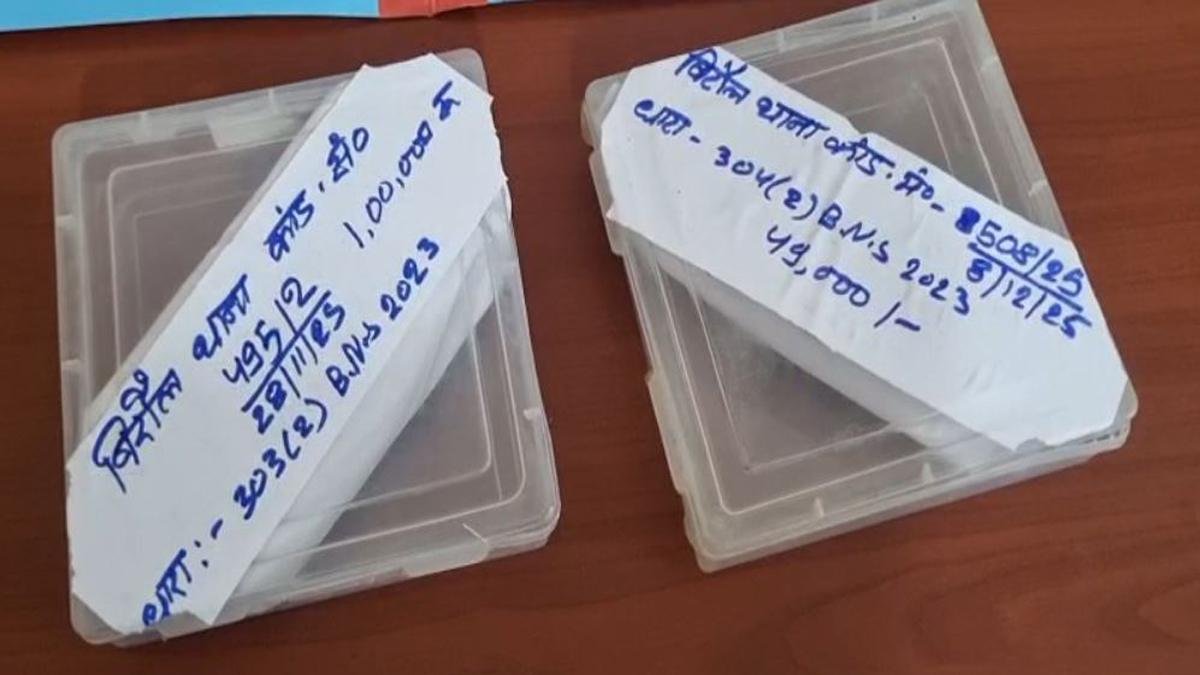 बिरौल थाना कांड. सं०
495/2
28/11/25
1,00,000 रु
धारा :- 303(2) B.N.S 2023
बिरौल थाना कांड. सं०- 508/25
3/12/25
धारा - 304(2) B.N.S 2023
49,000/-